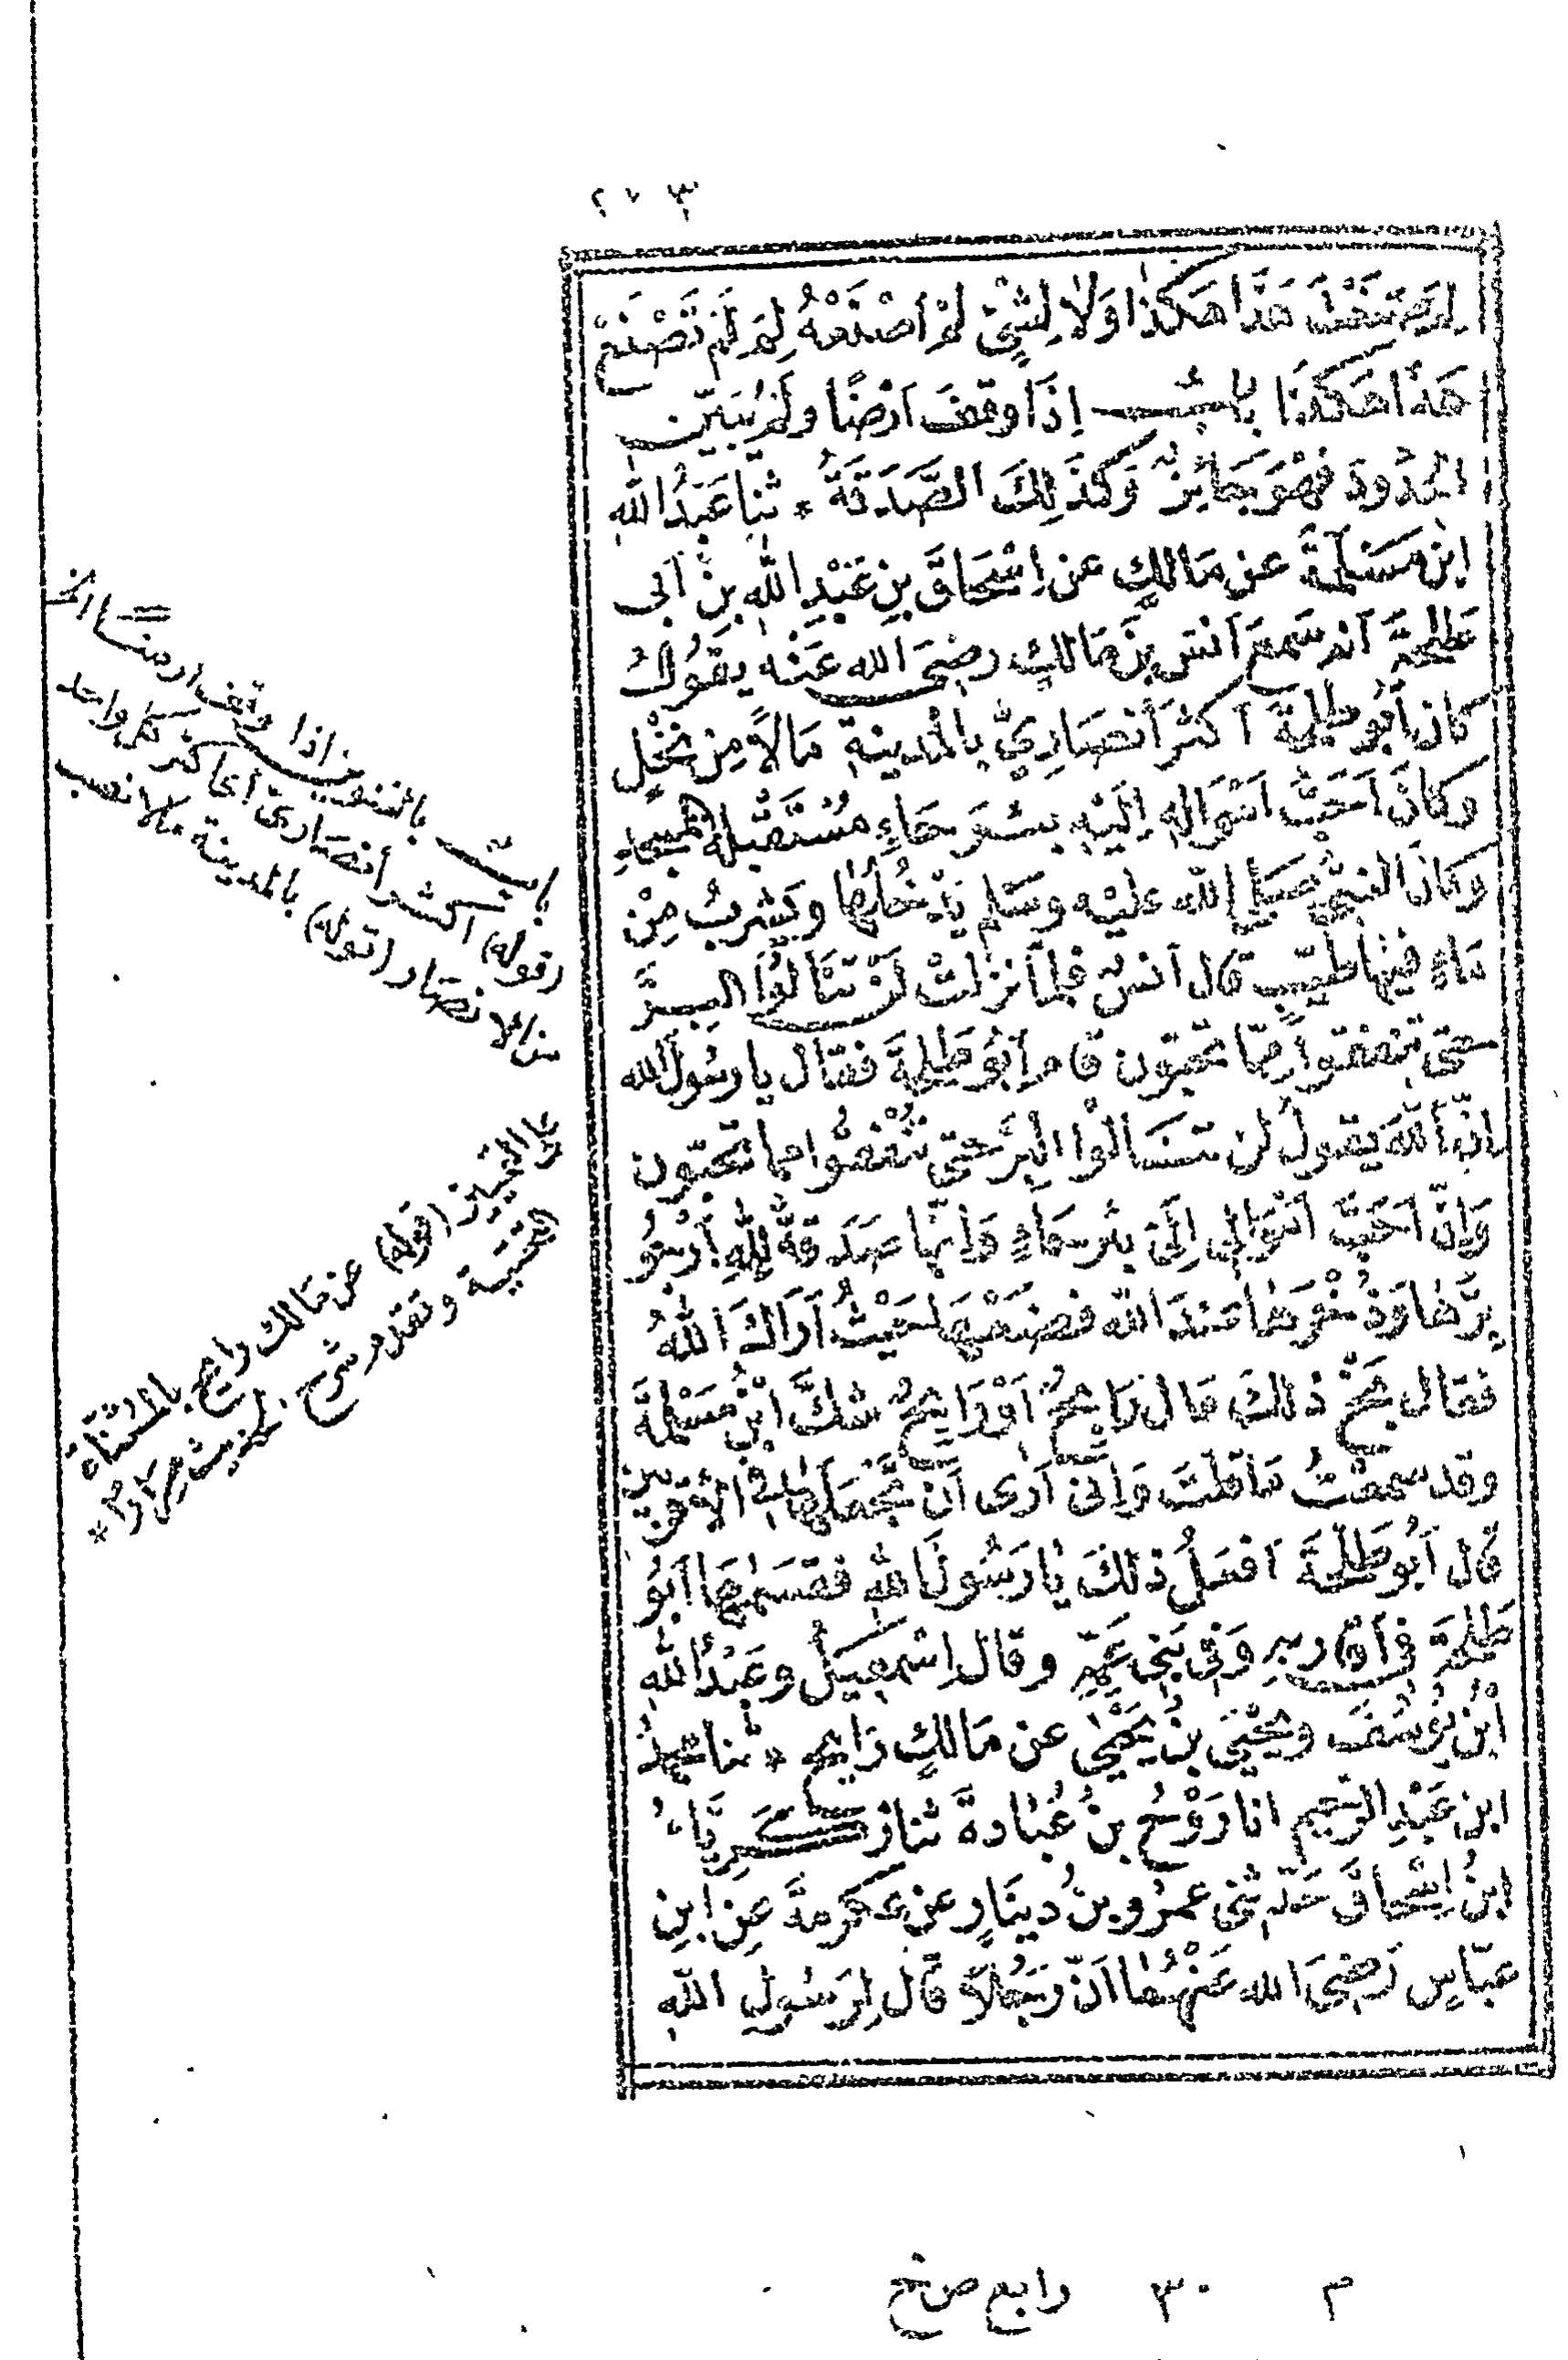 ٢٧٣
لِمَ صَنَعْتَ هَذَا هَكَذَا وَلَا لِشَيْءٍ لَمْ اَصْنَعْهُ لِمَ لَمْ تَصْنَعْ
هَذَا هَكَذَا بابٌ اِذَا وقَفَ اَرْضًا ولَمْ يُبَيِّن
الحُدُودَ فَهْوَ جَائِزٌ وَكَذَلِكَ الصَّدَقَةُ * ثنا عَبْدُ اللهِ
ابْن مَسْلَمَةَ عن مَالِكٍ عن اِسْحَاقَ بنِ عَبْدِ اللهِ بنِ اَبى
طَلْحَةَ اَنه سَمِعَ اَنسَ بنَ مَالِكٍ رضِىَ الله عَنْه يقَوُلُ
كان اَبُو طَلْحَةَ اَكثرَ اَنْصَارِيٍّ بِالْمَدِينَةِ مَالاً مِن نخْلٍ
وكَانَ اَحَبُّ اَمْوَالِهِ اِلَيْهِ بئرَ حَاءٍ مُسْتَقْبِلَةَ المسجدِ
وكَانَ النبىُّ صَلى الله عليْه وسَلم يَدْخُلُهَا ويَشْرَبُ مِنْ
مَاءٍ فيهَا طَيّبٍ قال اَنسٌ فلما نزلتْ لَنْ تَنَالُوا البِرَّ
حتى تنفقوا مِمّا تحبّون قام اَبُو طَلحَةَ فقال يا رسُولَ الله
اِنّ اللهَ يقولُ لن تَنَالُوا البِرَّ حتى تُنْفِقُوا مما تحبّون
وَاِنّ اَحَبَّ اَمْوَالِى اِلَىَّ بئرَحَاءٍ وَاِنّهَا صَدَقةٌ لِلّهِ اَرْجُو
بِرَّهَا وَذُخْرَهَا عندَ الله فضَعْهَا حَيْثُ اَرَاكَ اللهُ
فقال بَخْ ذلكَ مَال رَابِحٌ اَوْ رَايِحٌ شكَّ ابْنُ مَسْلَمَةَ
وقد سمعْتُ ما قلتَ وَاِنّى اَرى اَن تجْعَلَهَا فى الاَقْرَبين
قال اَبُو طَلْحَةَ اَفعَلُ ذلكَ يَا رَسُولَ اللهِ فقسَمَهَا اَبُو
طَلحَةَ فى اَقَارِبهِ وَفى بَنِى عَمِّهِ وقال اِسْمَعِيلُ وعَبْدُ اللهِ
ابْنُ يُوسُفَ ويَحْيَى بنُ يَحْيَى عن مَالكٍ رَايح * ثنا محمدُ
ابن عَبْدِ الرّحيم انا رَوْحُ بنُ عُبَادةَ ثنا زَكَرِيَّاءُ
ابنُ اِسْحَاقَ حَدّثنى عمرُو بنُ دينَارٍ عن عكرمةَ عن ابنِ
عبّاسٍ رَضِىَ الله عَنْهُمَا اَنّ رَجُلاً قَال لِرَسُولِ اللهِ
باب بالتنوين اذا وقف ارضا الخ
(قوله) اكثر أنصارى أى اكثر كل واحد
من الانصار (قوله) بالمدينة مالا نصب
على التمييز (قوله) عن مالك رايح بالمثناة
التحتية وتقدم شرح الحديث مرارا *
م ٣٠ رابع ص خ